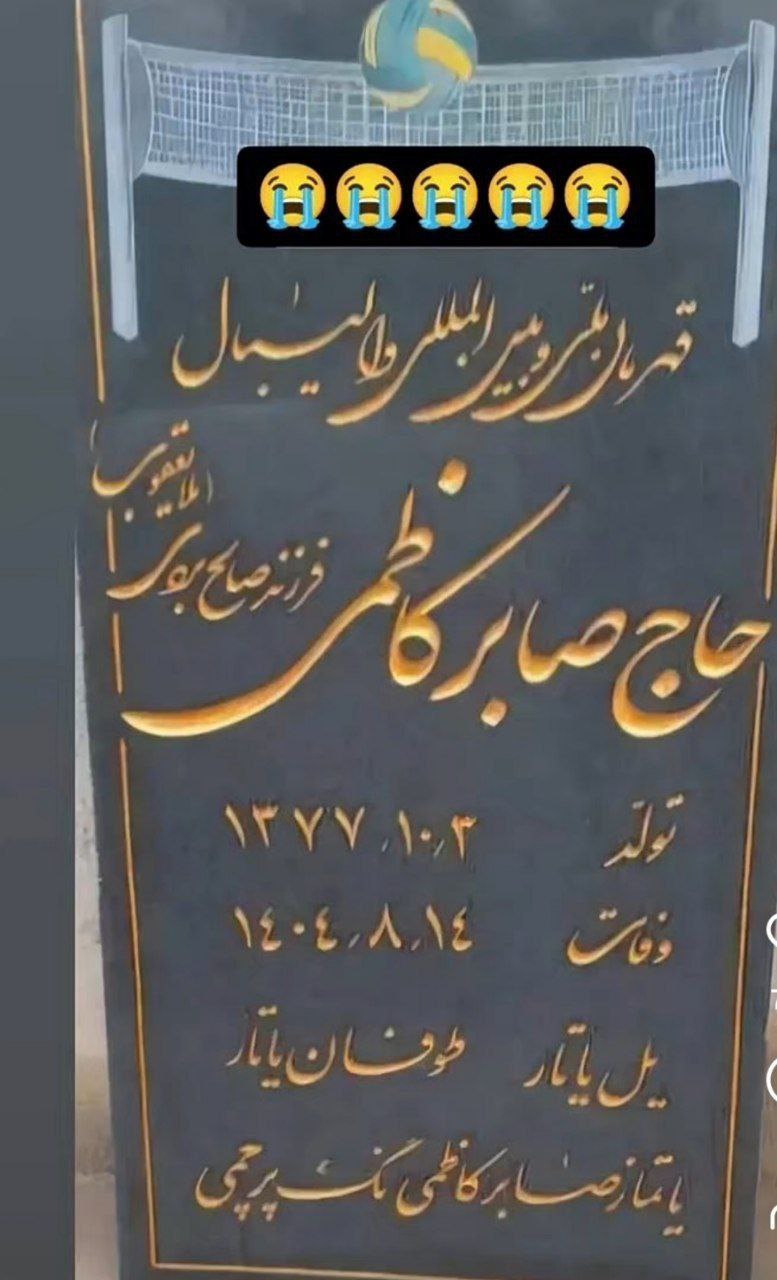 قهرمان ملی و بین المللی والیبال
حاج صابر کاظمی
فرزند صالح بردی
(ملا یعقوب)
تولد ۱۳۷۷٫۱۰٫۳
وفات ١٤٠٤٫٨٫١٤
یل یاتار طوفان یاتار
یاتماز صابر کاظمی نگ پرچمی